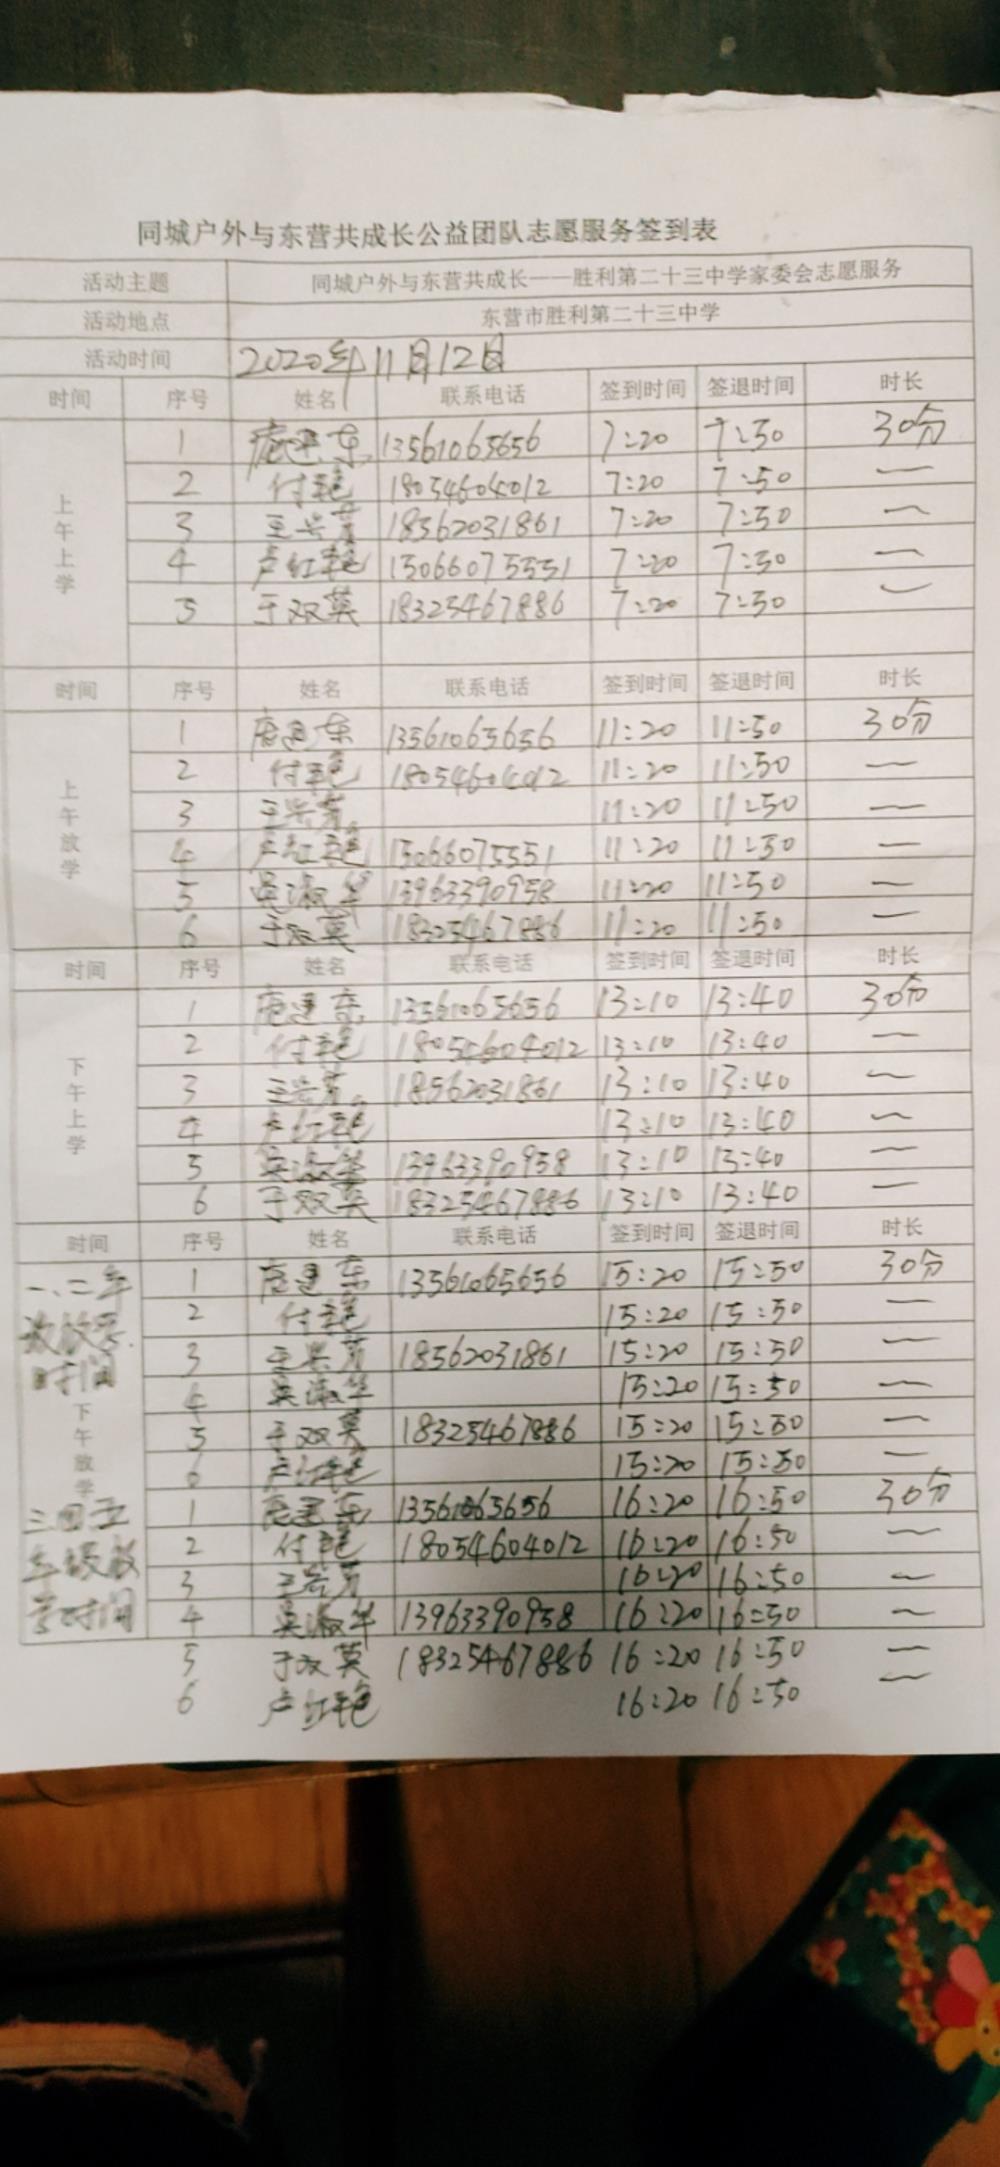 同城户外与东营共成长公益团队志愿服务签到表
活动主题 同城户外与东营共成长——胜利第二十三中学家委会志愿服务
活动地点 东营市胜利第二十三中学
活动时间 2020年11月12日
时间 序号 姓名 联系电话 签到时间 签退时间 时长
上午上学
1 庞建东 13561065656 7:20 7:50 30分
2 付艳 18054604012 7:20 7:50 —
3 王兴芳 18562031861 7:20 7:50 —
4 卢红艳 15066075551 7:20 7:50 —
5 于双英 18325467886 7:20 7:50 —
时间 序号 姓名 联系电话 签到时间 签退时间 时长
上午放学
1 庞建东 13561065656 11:20 11:50 30分
2 付艳 18054604012 11:20 11:50 —
3 王兴芳 11:20 11:50 —
4 卢红艳 15066075551 11:20 11:50 —
5 吴淑华 13963390958 11:20 11:50 —
6 于双英 18325467886 11:20 11:50 —
时间 序号 姓名 联系电话 签到时间 签退时间 时长
下午上学
1 庞建东 13561065656 13:10 13:40 30分
2 付艳 18054604012 13:10 13:40 —
3 王兴芳 18562031861 13:10 13:40 —
4 卢红艳 13:10 13:40 —
5 吴淑华 13963390958 13:10 13:40 —
6 于双英 18325467886 13:10 13:40 —
时间 序号 姓名 联系电话 签到时间 签退时间 时长
一、二年级放学时间
下午放学
1 庞建东 13561065656 15:20 15:50 30分
2 付艳 15:20 15:50 —
3 王兴芳 18562031861 15:20 15:50 —
4 吴淑华 15:20 15:50 —
5 于双英 18325467886 15:20 15:50 —
6 卢红艳 15:20 15:50 —
三四五年级放学时间
1 庞建东 13561065656 16:20 16:50 30分
2 付艳 18054604012 16:20 16:50 —
3 王兴芳 16:20 16:50 —
4 吴淑华 13963390958 16:20 16:50 —
5 于双英 18325467886 16:20 16:50 —
6 卢红艳 16:20 16:50 —